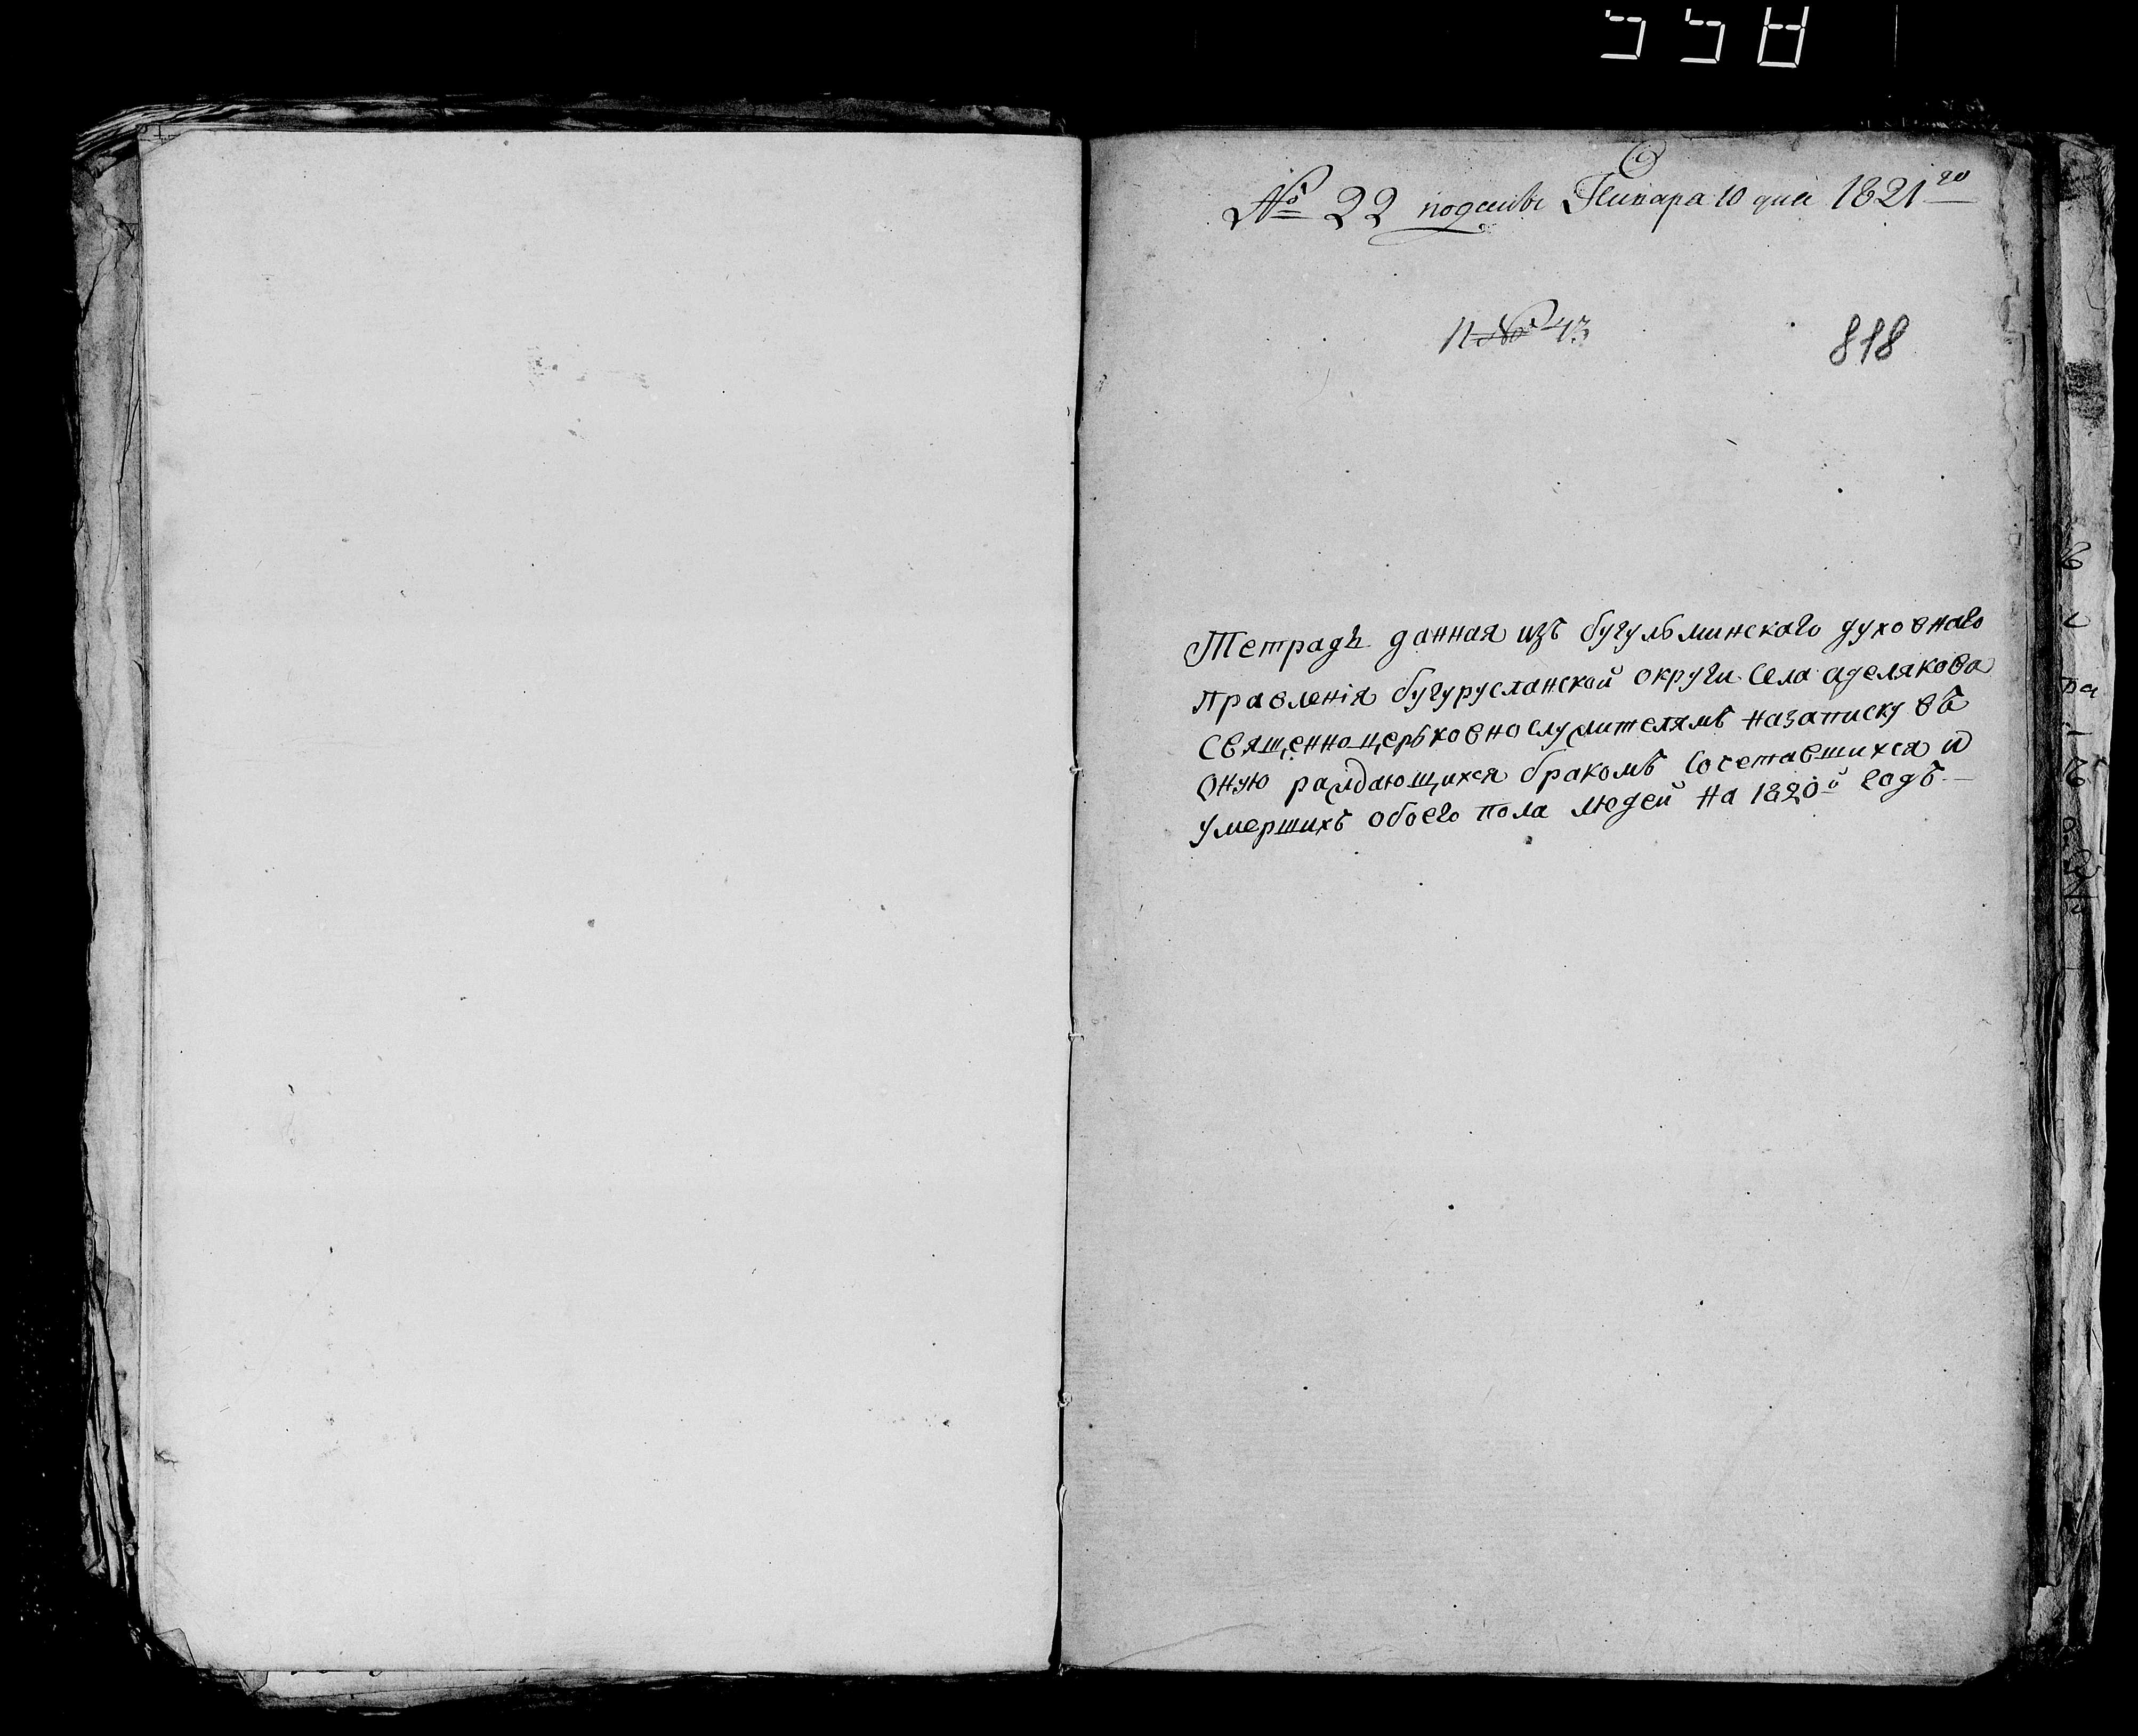 558
№ 22 подани Генваря 10 дня 1821го
№ 43
818
Тетрадь данная изъ бугульминскаго духовнаго
правленія бугурусланской округи села аделякова
священноцерьковнослужителямъ назаписку въ
оную раждающихся бракомъ сочетавшихся и
умершихъ обоего пола людей на 1820й годъ